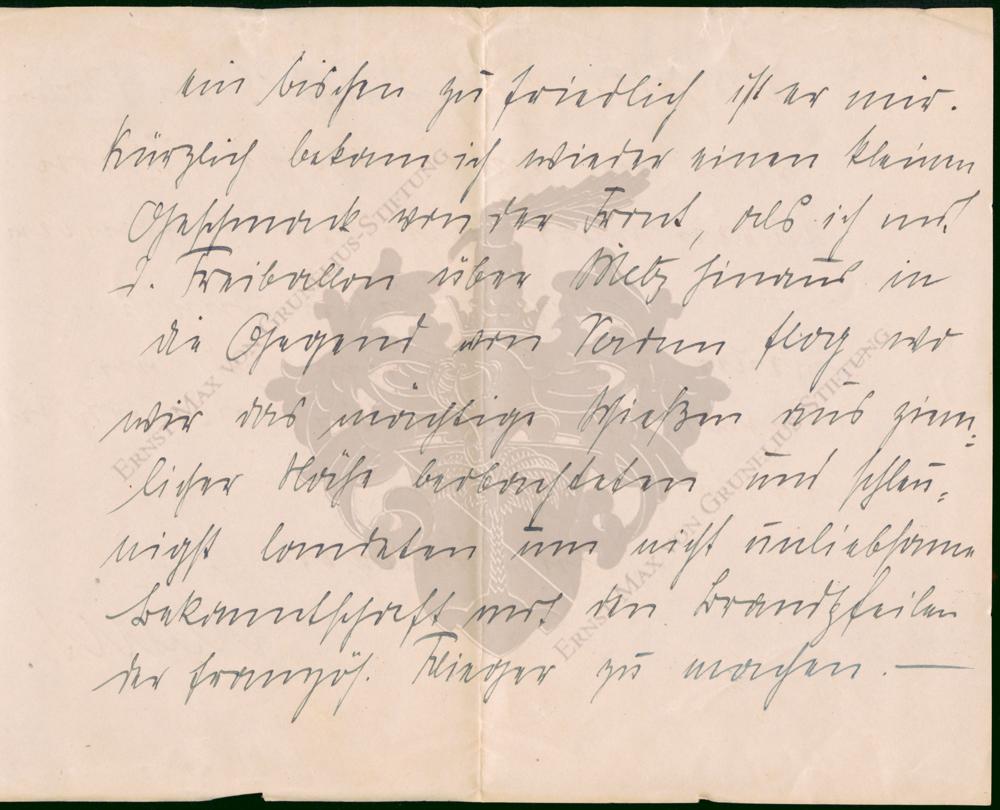 ein bischen zu friedlich ist er mir.
Kürzlich bekam ich wieder einen kleinen
Geschmack von der Front, als ich mit
d. Freiballon über Metz hinaus in
die Gegend von Verdun flog wo
wir das mächtige Schießen aus ziem-
licher Nähe beobachteten und schleu-
nigst landeten um nicht unliebsame
Bekanntschaft mit den Brandpfeilen
der französ. Flieger zu machen. —
ERNST MAX VON GRUNELIUS-STIFTUNG
ERNST MAX VON GRUNELIUS-STIFTUNG